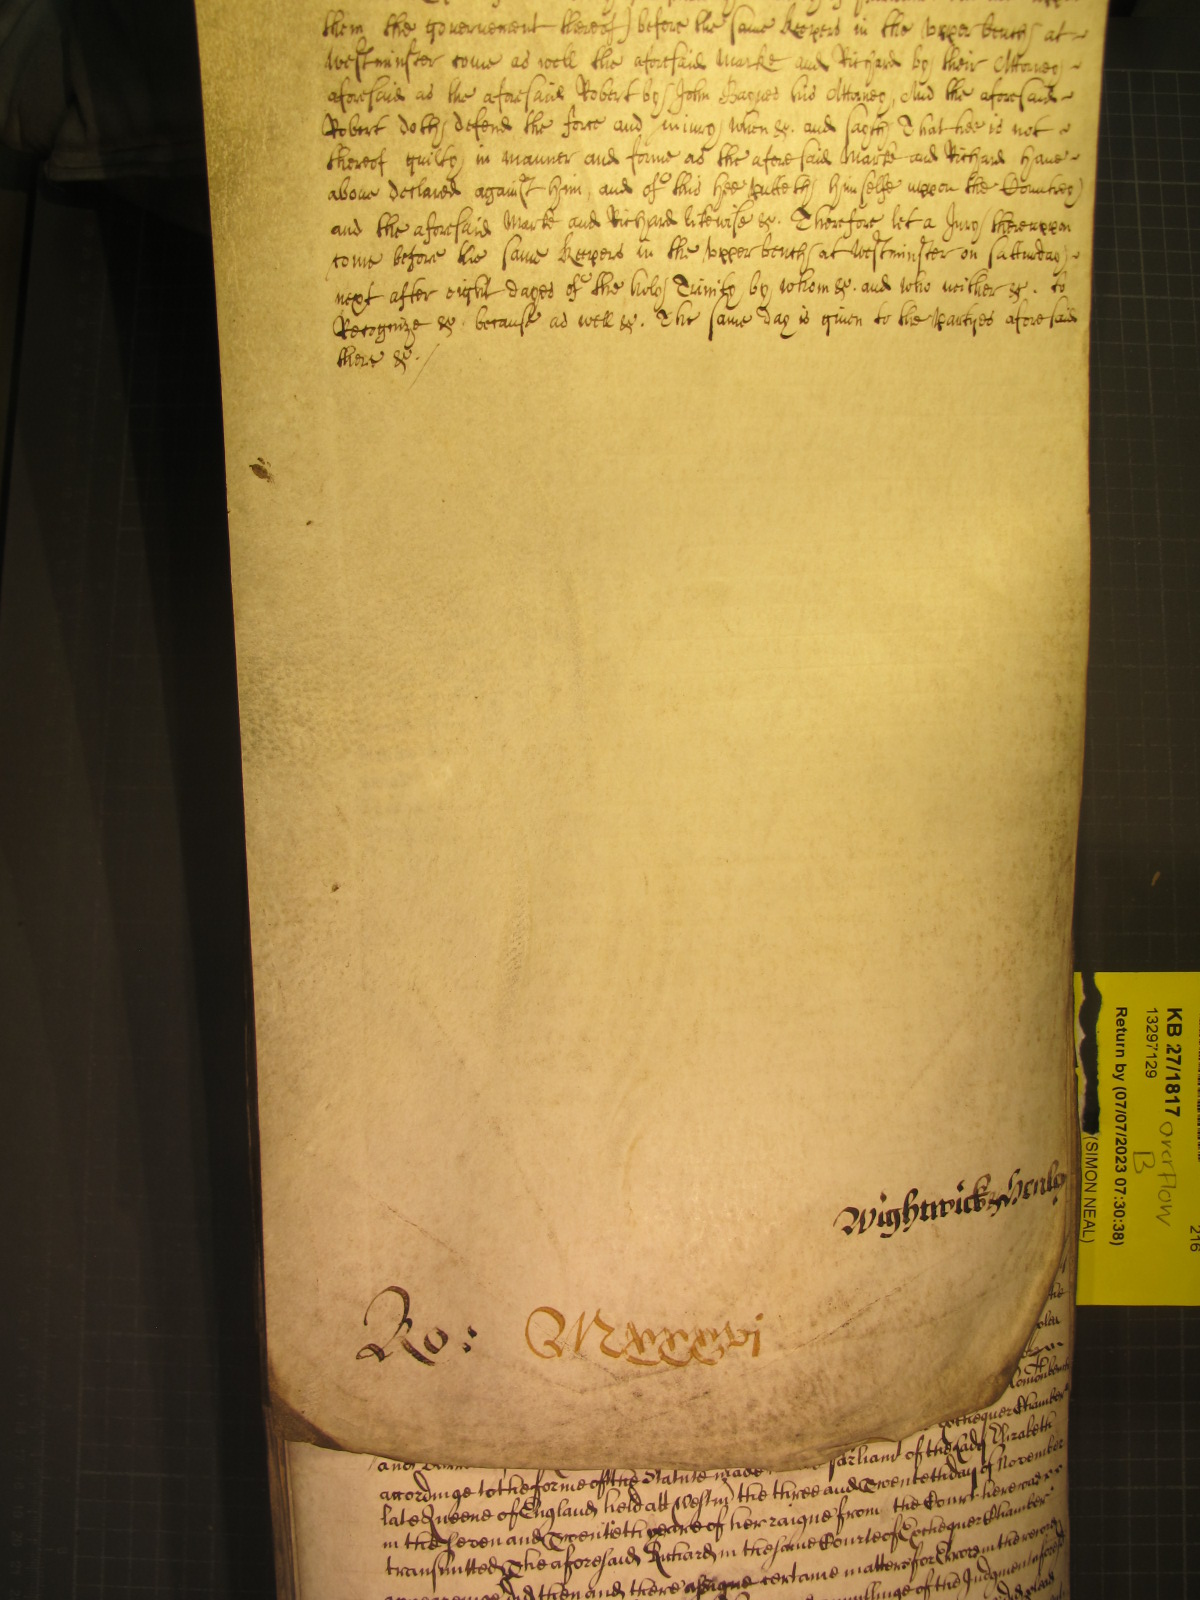 them the governement thereof) before the same Keepers in the upper bench at
Westminster come as well the aforesaid Marke and Richard by their Attorney
aforesaid as the aforesaid Robert by John Baynes his Attorney, And the aforesaid
Robert doth defend the force and iniury when &c. and sayth That hee is not
thereof guilty in manner and forme as the aforesaid Marke and Richard have
above declared against him, and of this hee putteth himselfe uppon the Countrey
and the aforesaid Marke and Richard likewise &c. Therefore let a Jury thereuppon
come before the same Keepers in the upper bench at Westminster on Satturday
next after eight dayes of the holy Trinity by whom &c. and who neither &c. to
Recognize &c. because as well &c. The same day is given to the partyes aforesaid
there &c.
Wightwick & Henley
Ro: Mccccvi
Exchequer Chamber
accordinge to the forme of the Statute made parliamt of the Lady Elizabeth
late Queene of England held att Westmr the three and Twenteth day of November
in the Seven and Twentieth yeare of her raigne from the Court here
transmitted The aforesaid Richard in the same Courte of Exchequer Chamber
did then and there assigne certaine matters for Error in the record
of the Judgment aforesd
KB 27/1817 overflow B
13297129
Return by (07/07/2023 07:30:38)
(SIMON NEAL)
216